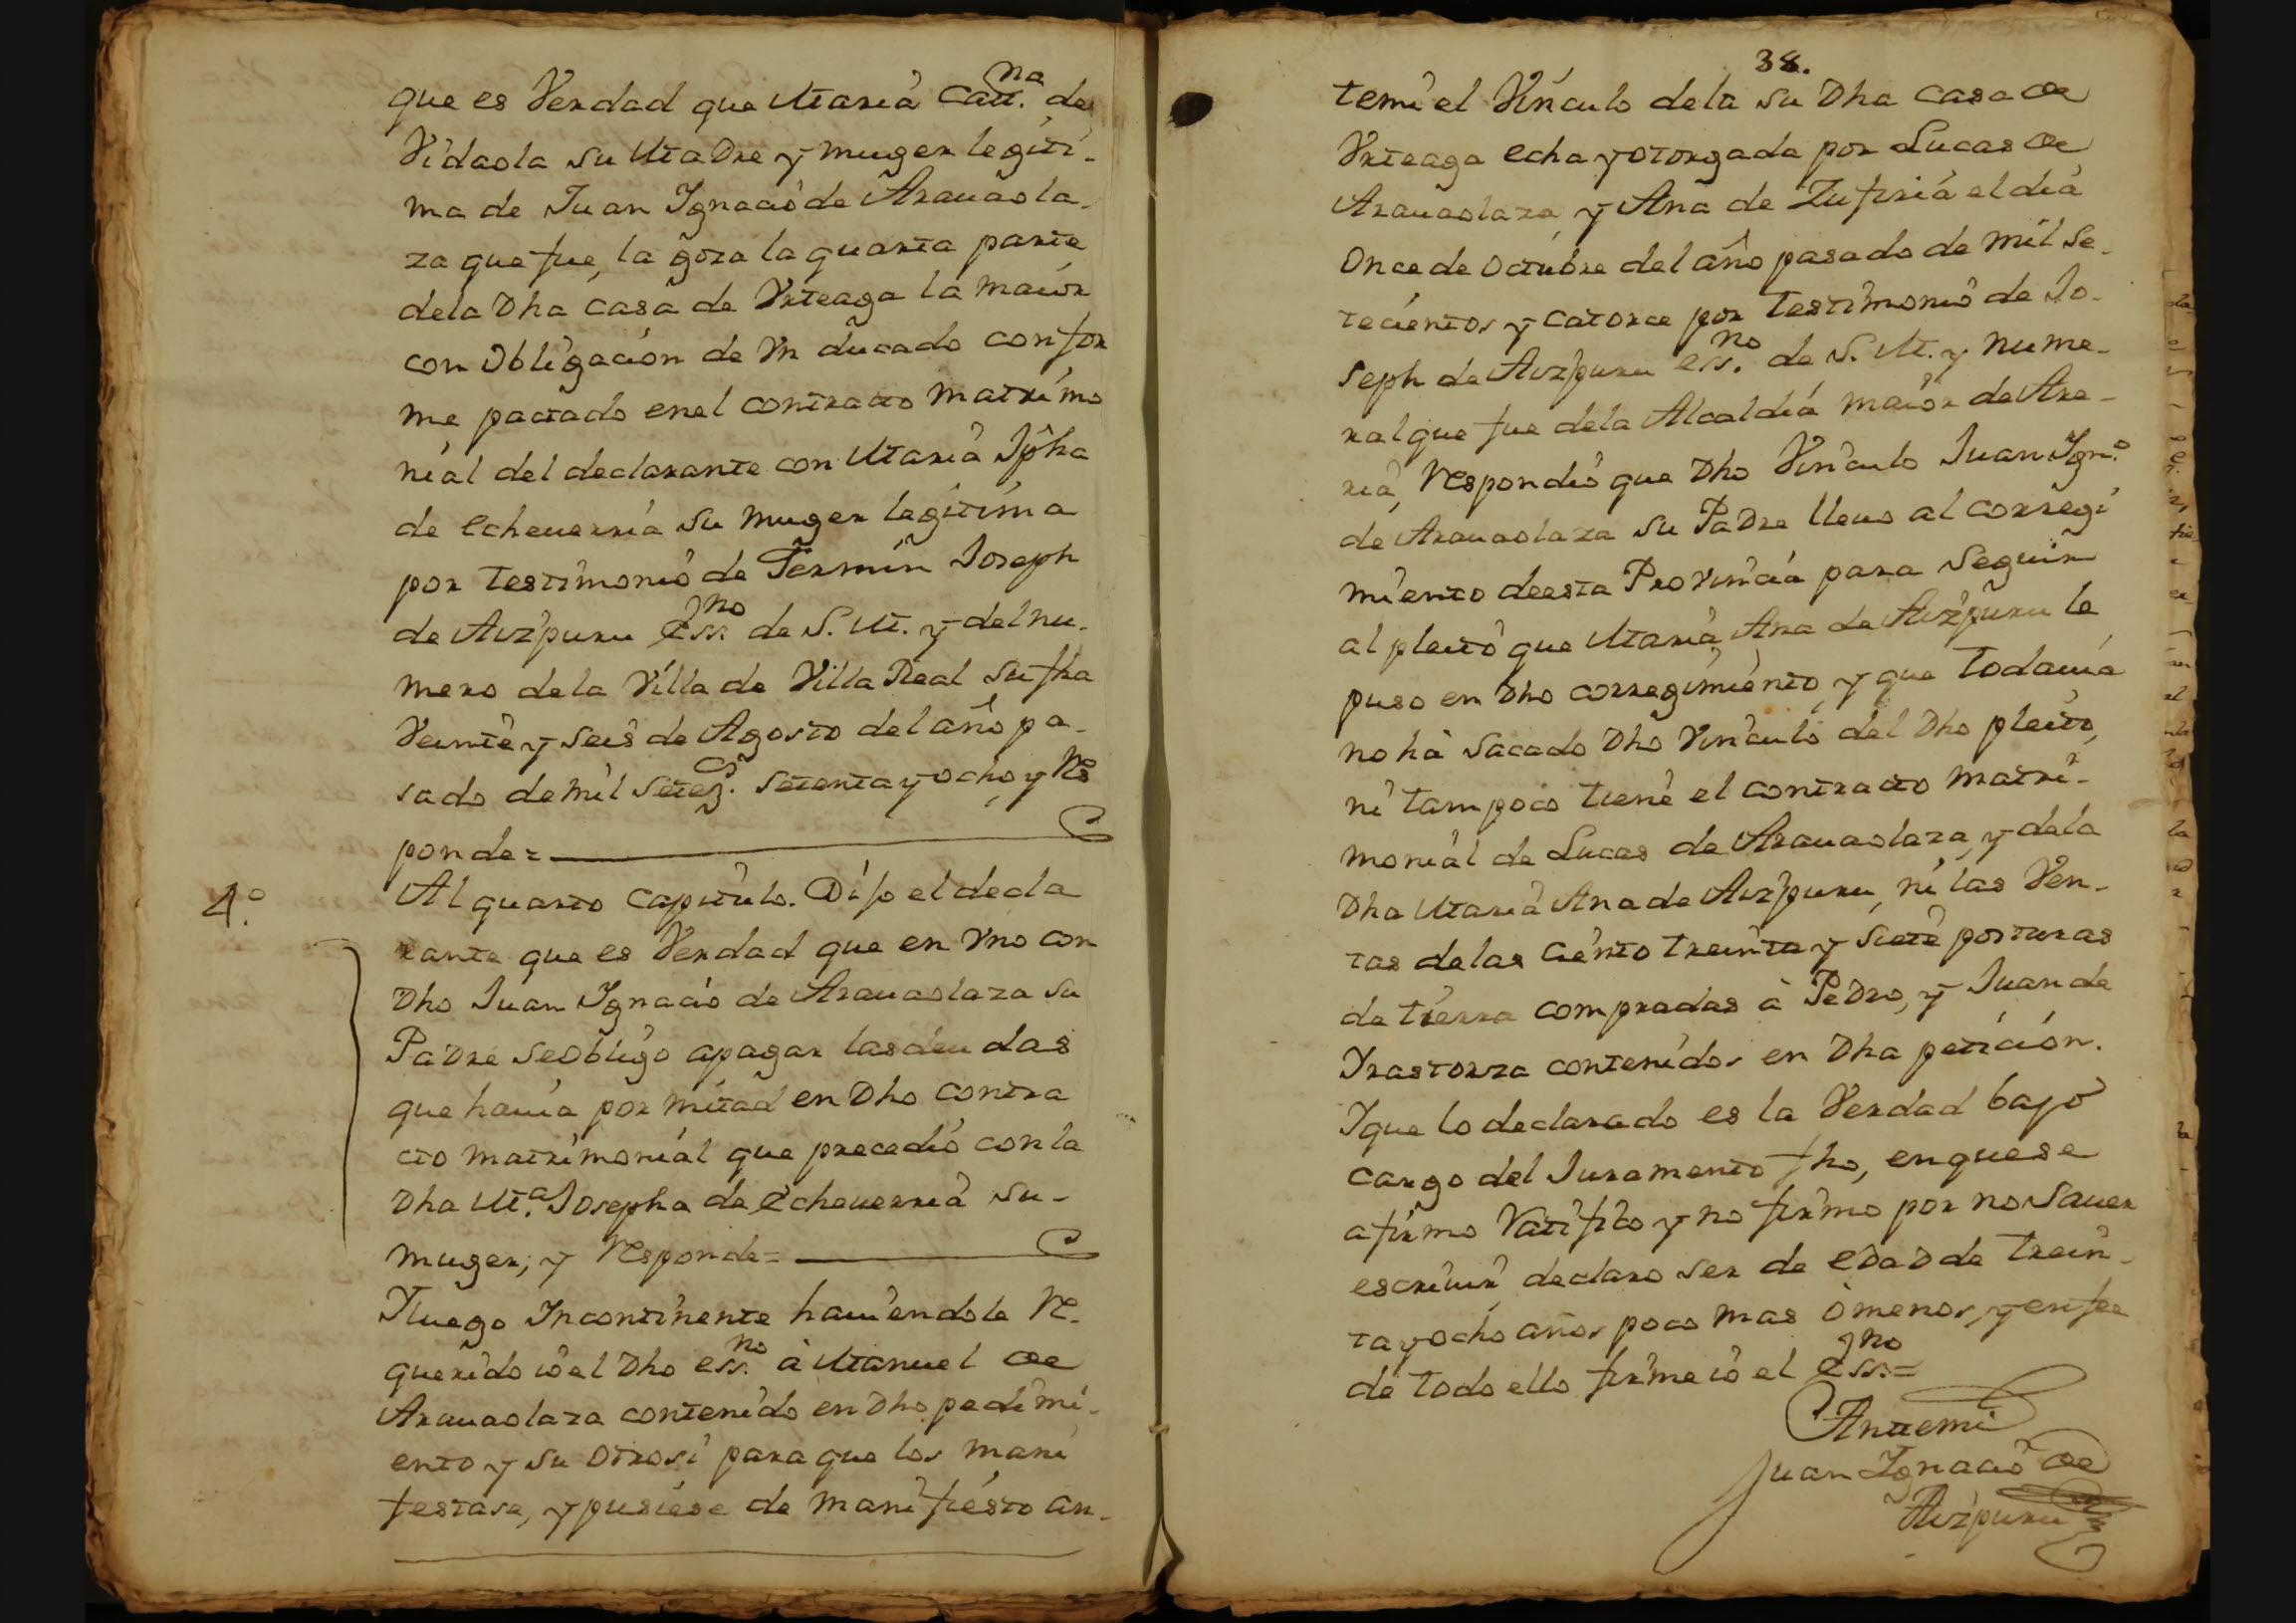 que es Verdad que Maria Catt.na de
Vidaola su Madre y muger legiti-
ma de Juan Ignacio de Arauaola-
za que fue, la goza la quarta parte
dela Dha Casa de Vrteaga la maior
con Obligacion de Vn ducado confor
me pactado enel contracto matrimo
nial del declarante con Maria Jpha
de Echeuerria su muger legitima
por testimonio de Fermin Joseph
de Aizpuru Ess.no de S. M. y del nu-
mero dela Villa de Villa Real su fha
Veinte y seis de Agosto del año pa-
sado de mil setez.s setenta y ocho y Res
ponde=
4.o Al quarto Capitulo. Dijo el decla
rante que es Verdad que en Vno con
Dho Juan Ignacio de Arauaolaza su
Padre se obligo apagar las deudas
que hauia por mitad en Dho contra
cto matrimonial que precedio con la
Dha M.a Josepha de Echeuerria su-
muger; y Responde=
Y luego Incontinente hauiendole Re-
querido io el Dho ess.no à Manuel de
Arauaolaza contenido en Dho pedimi-
ento y su otrosi para que los mani
festase, y pusiese de manifiesto an-
38.
temi el Vinculo dela su Dha Casa de
Vrteaga echa y otorgada por Lucas de
Arauaolaza, y Ana de Zufiria el dia
Once de Octubre del año pasado de mil se-
tecientos y catorce por testimonio de Jo-
seph de Aizpuru ess.no de S. M. y nume-
ral que fue dela Alcaldia maior de Are-
ria, Respondio que Dho Vinculo Juan Ign.o
de Arauaolaza su Padre lleuo al corregi
miento deesta Provincia para Seguir
al pleito que Maria Ana de Aizpuru le
puso en Dho corregimiento, y que todauia
no hà sacado Dho Vinculo del Dho pleito,
ni tampoco tiene el contracto matri-
monial de Lucas de Arauaolaza, y dela
Dha Maria Ana de Aizpuru, ni las Ven-
tas delas ciento treinta y siete posturas
de tierra compradas à Pedro, y Juan de
Yrastorza contenidos en Dha peticion.
Yque lo declarado es la Verdad bajo
cargo del Juramento fho, enquese
afirmo Ratifico y no firmo por no Sauer
escriuir declaro ser de edad de trein-
ta y ocho años poco mas ò menos, y en fee
de todo ello firme io el Ess.no=
Antemi
Juan Ignacio de
Aizpuru